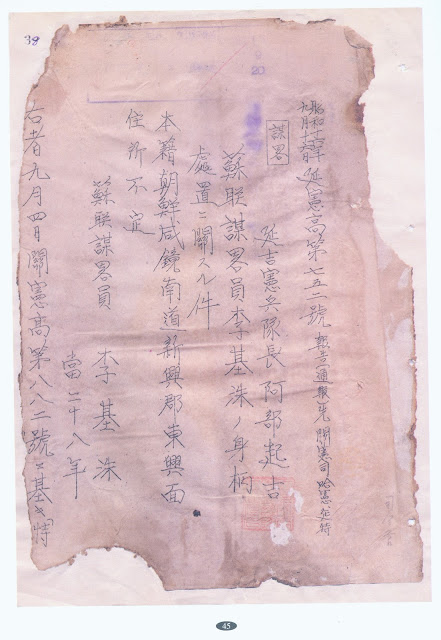 延憲高第七五二號
報告通報先 關憲司 哈憲 延特
謀畧
延吉憲兵隊長阿部起吉
蘇联謀畧員李基洙ノ身柄
處置ニ關スル件
本籍朝鮮咸鏡南道新興郡東興面
住所不定
蘇联謀畧員 李基洙
當二十八年
右者九月四日關憲高第八八二號ニ基キ特
39
20
45